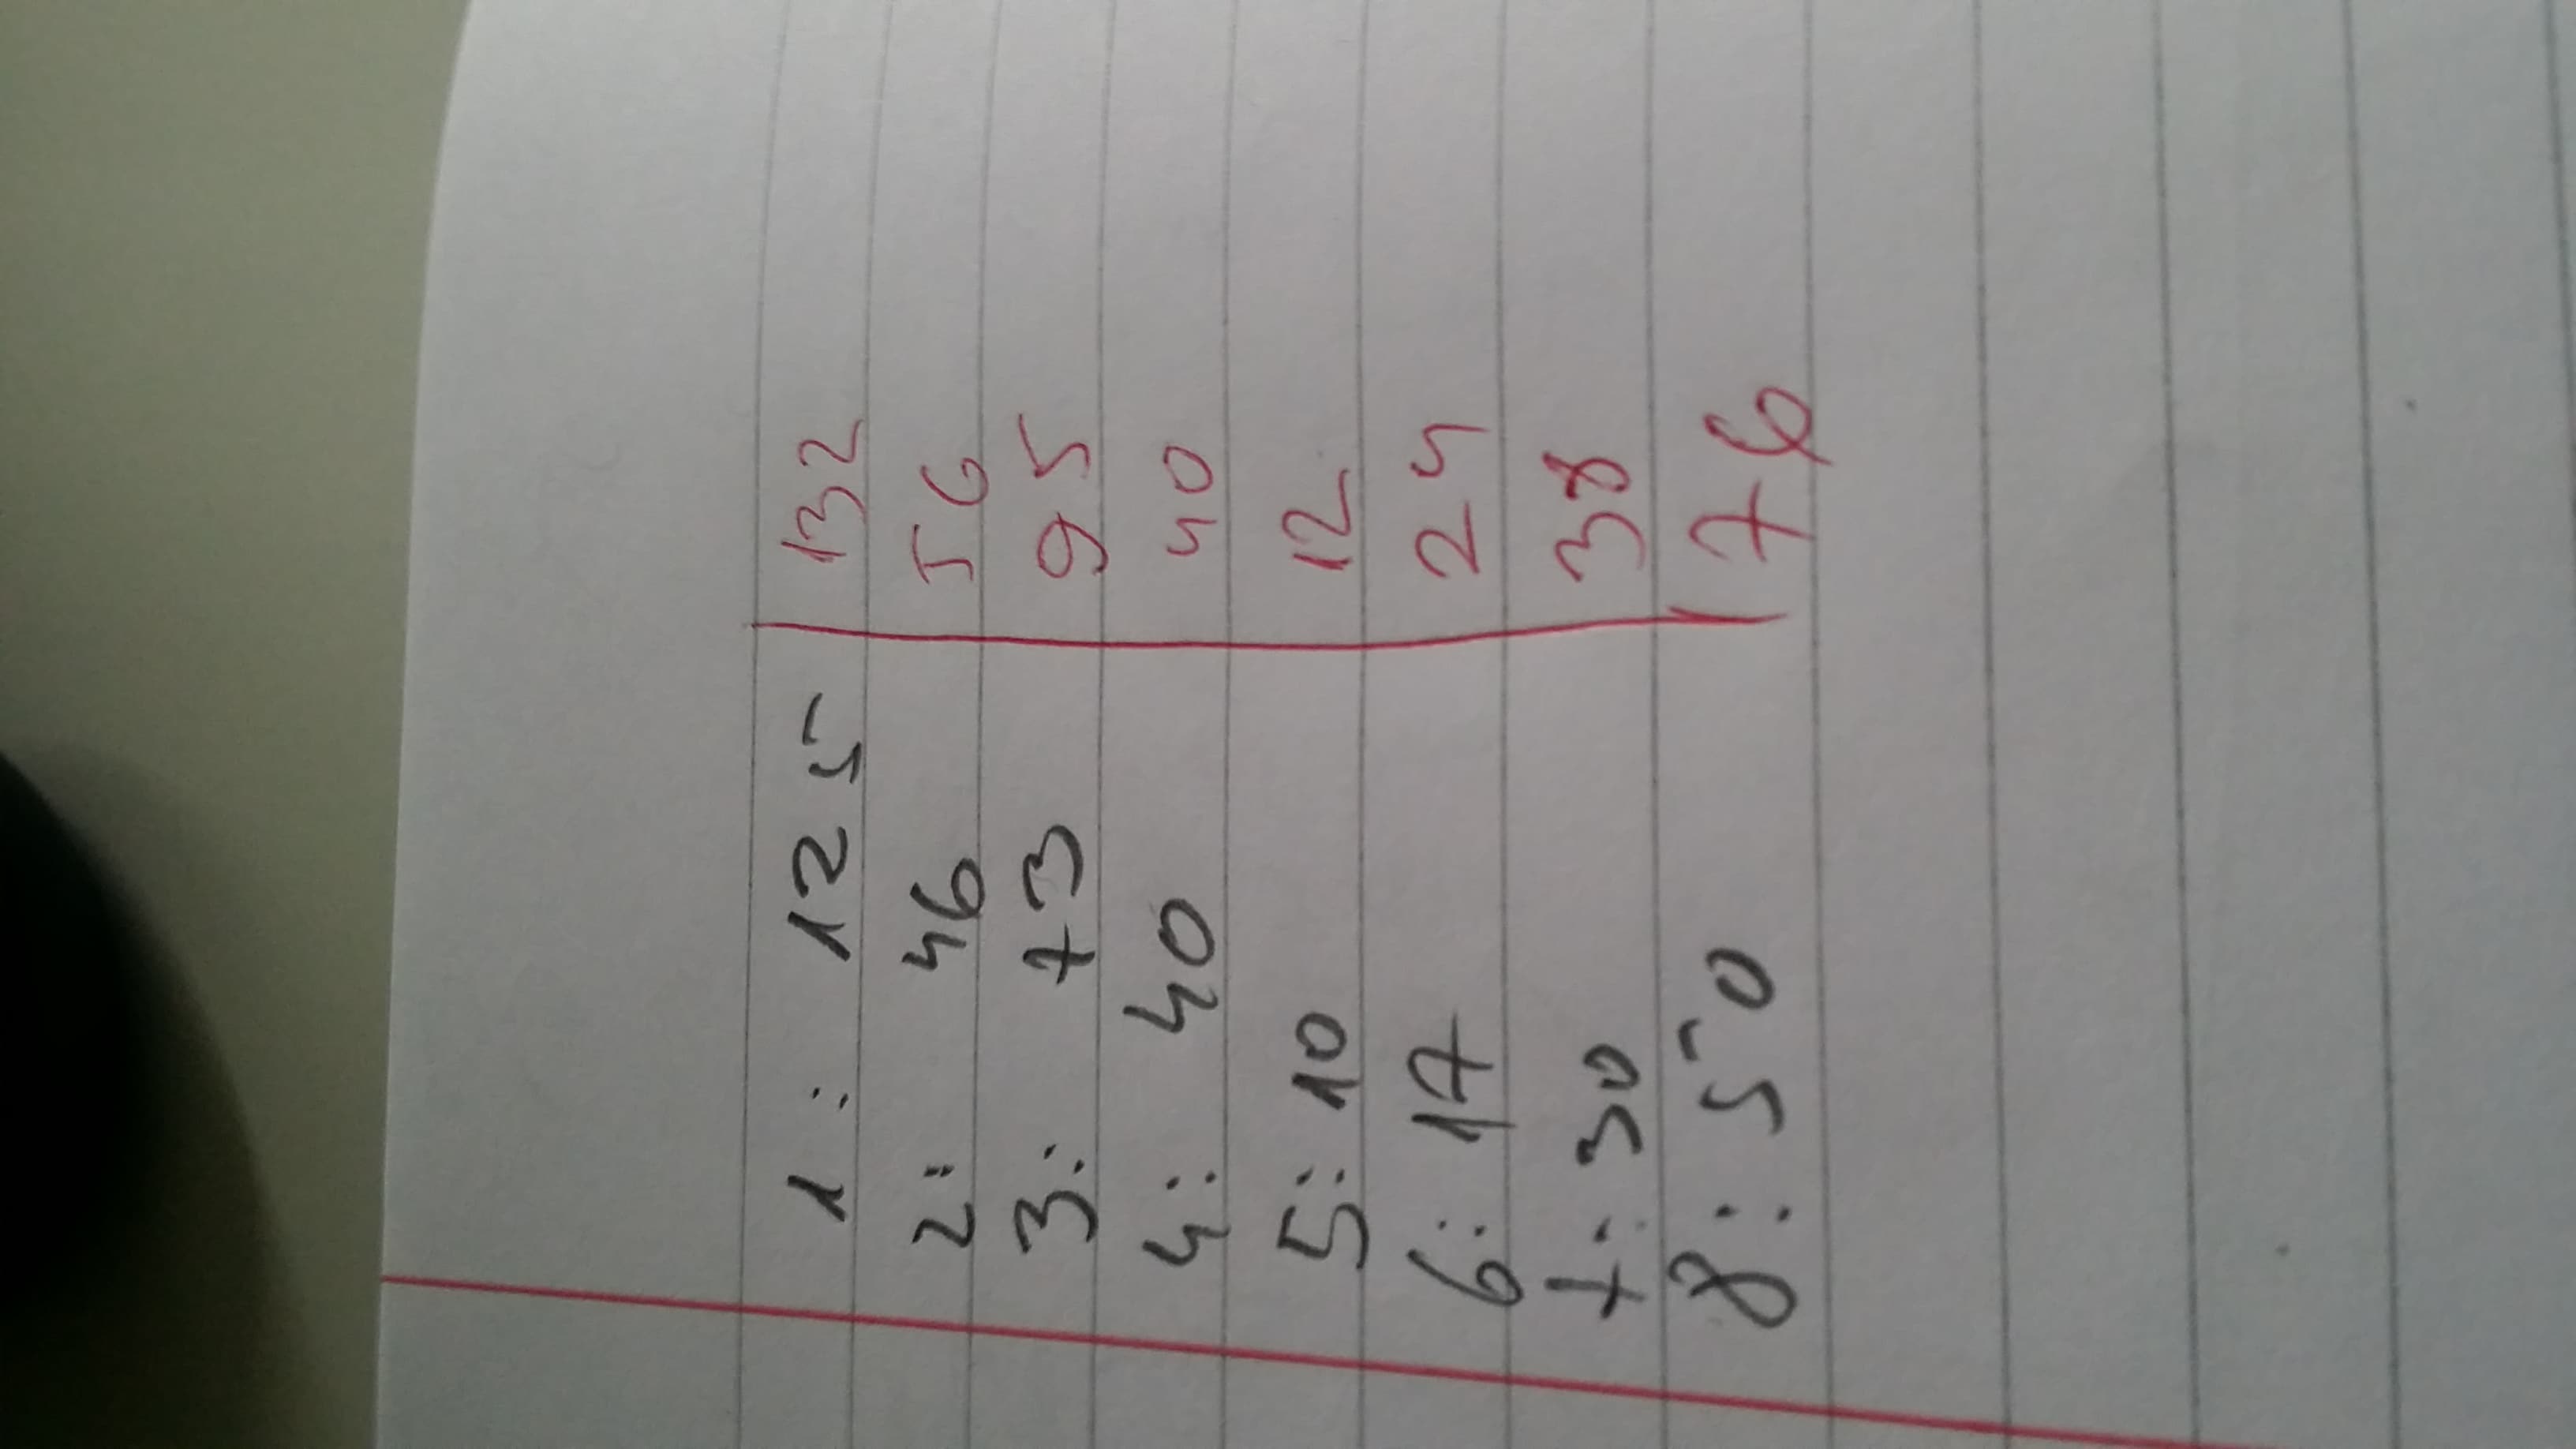 1: 125 132
2: 46 56
3: 73 95
4: 40 40
5: 10 12
6: 17 24
7: 30 38
8: 50 76